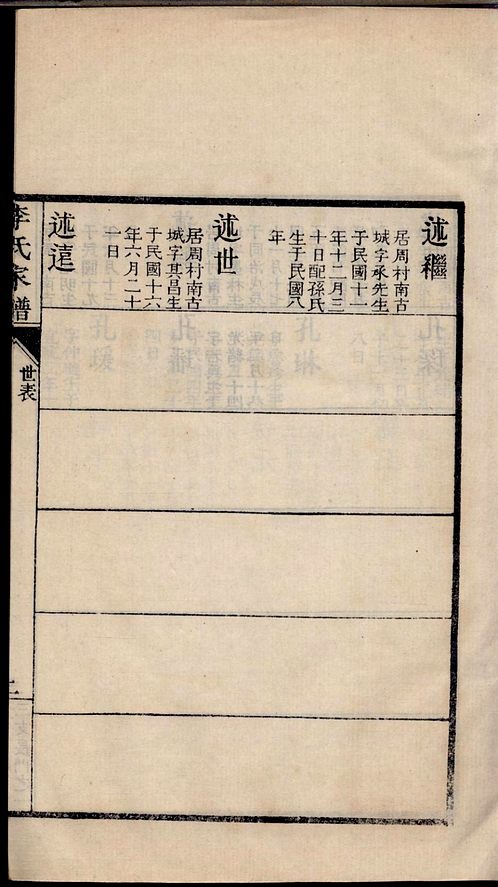 述繼
居周村南古
城字承先生
于民國十一
年十二月三
十日配孫氏
生于民國八
年
述世
居周村南古
城字其昌生
于民國十六
年六月二十
一日
述遠
李氏家譜
世表